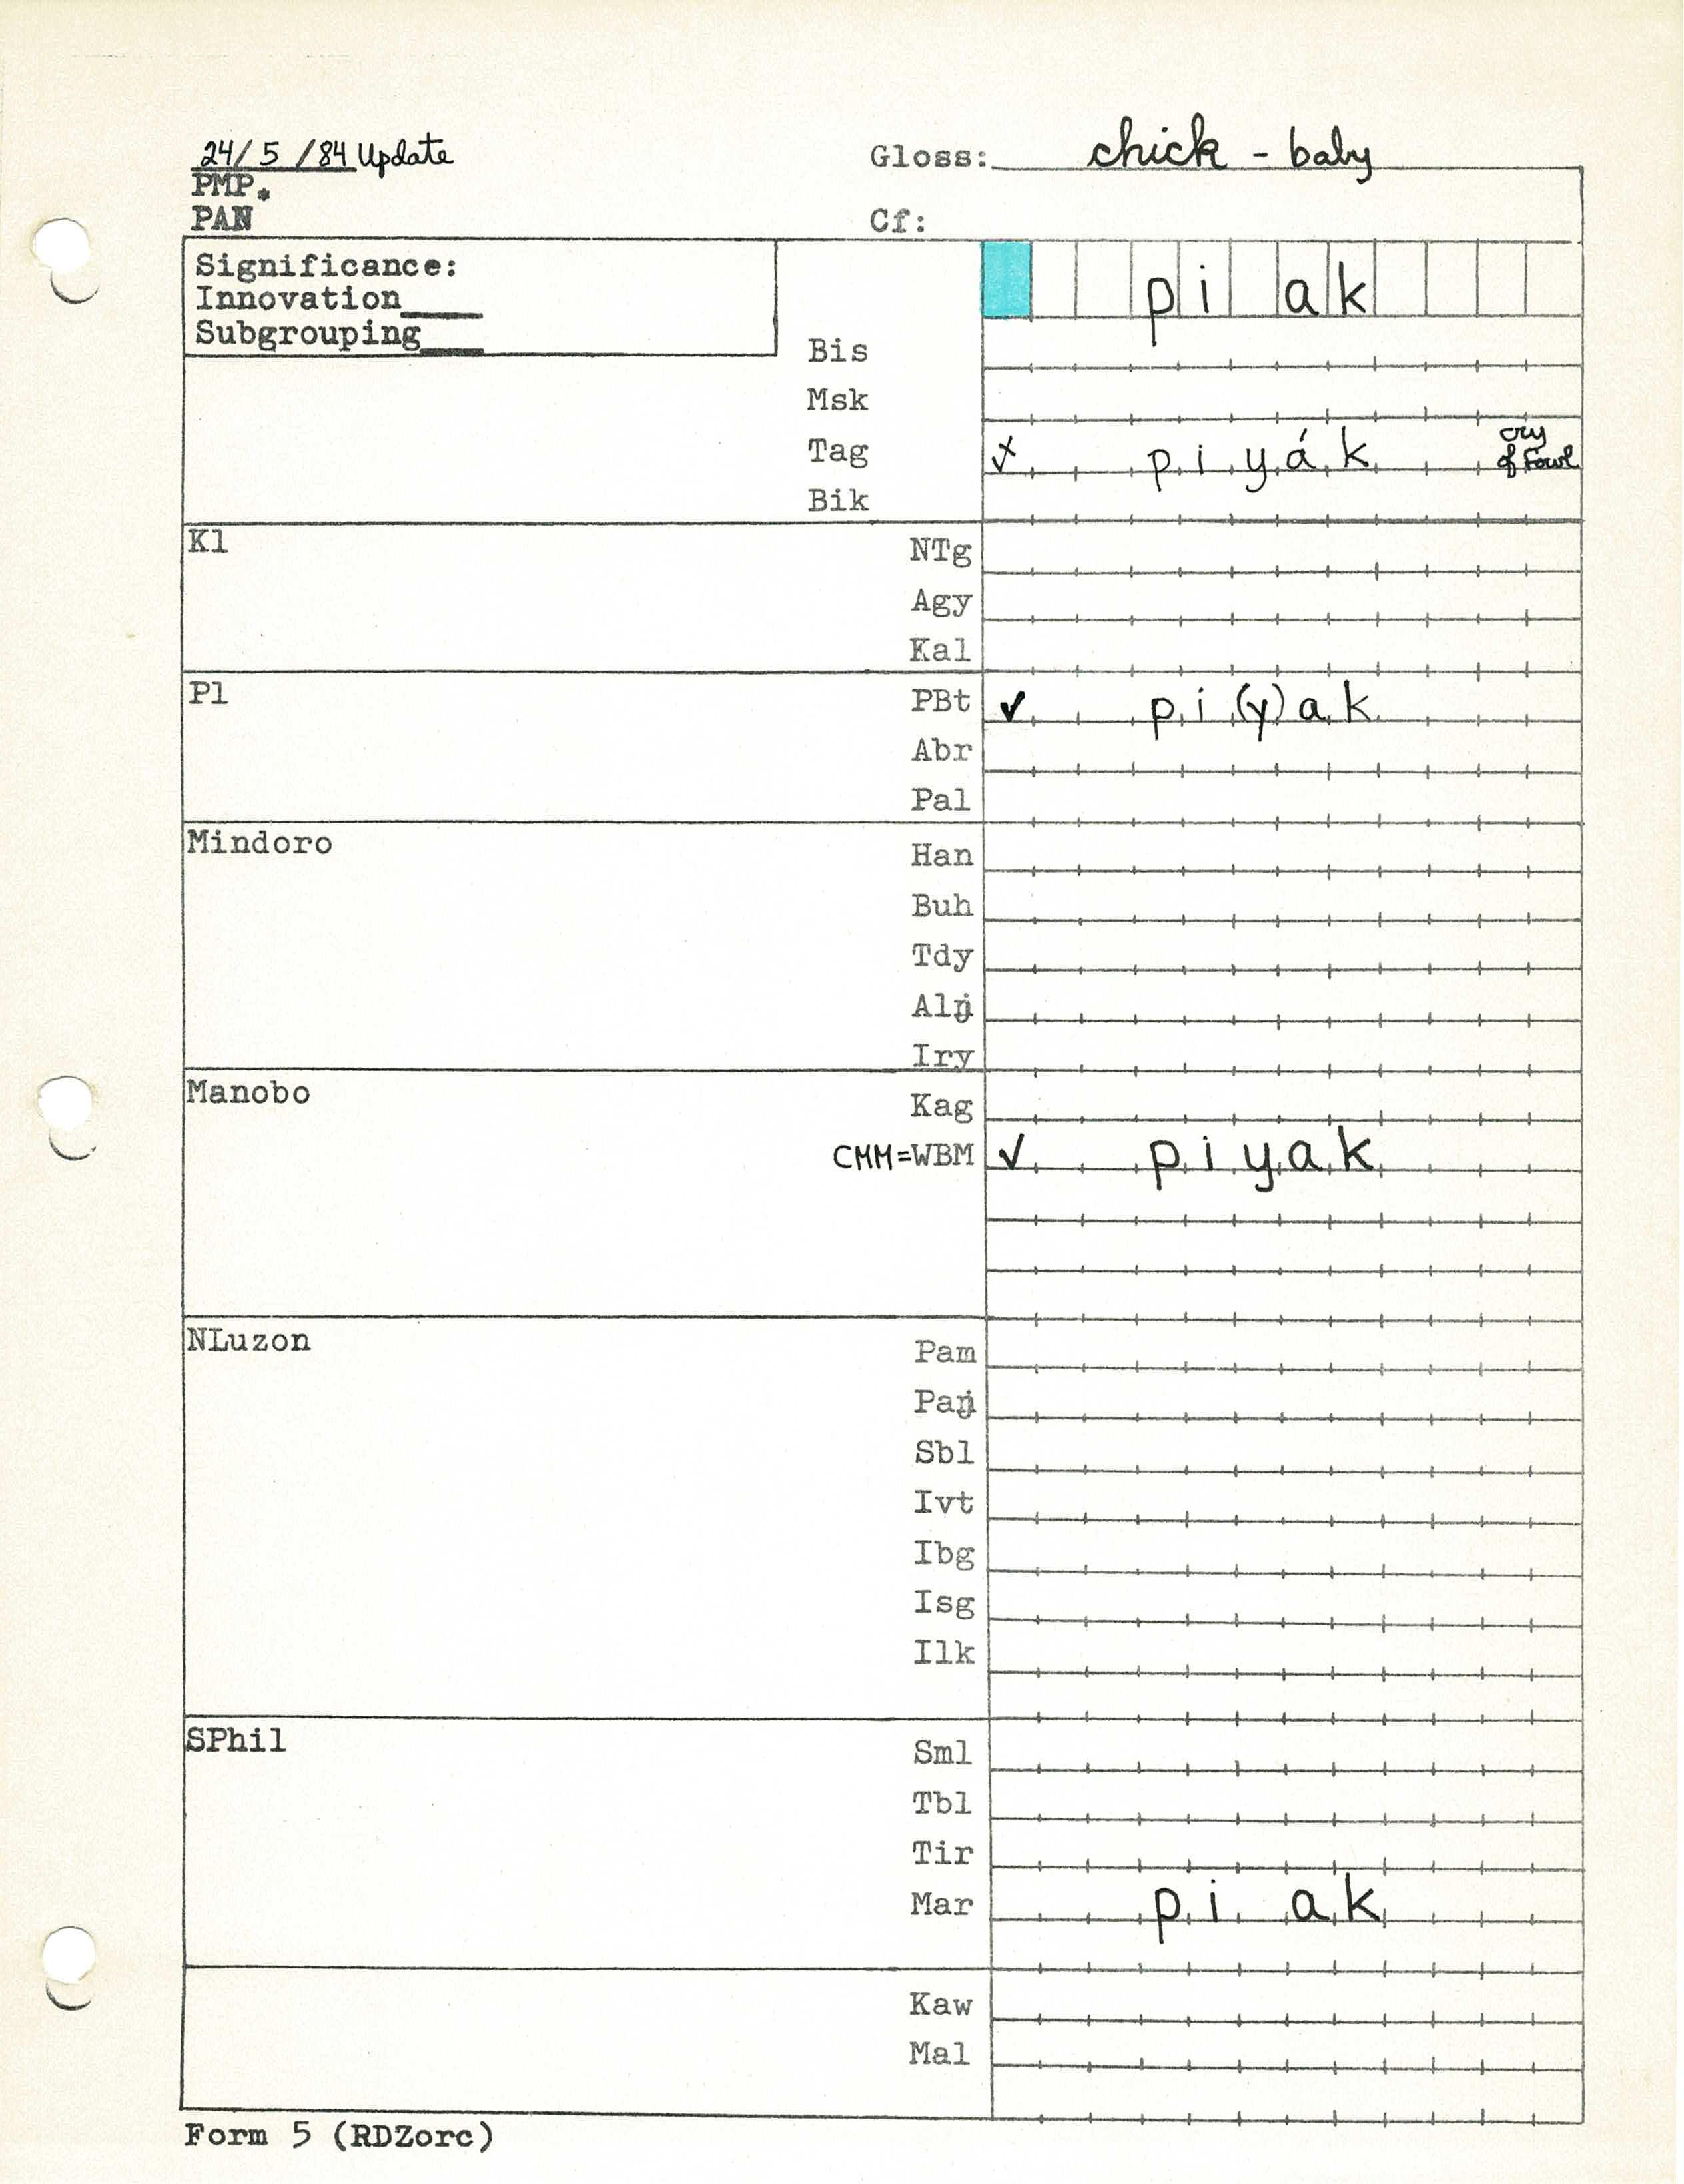 24/5/84 Update
Gloss: chick - baby
PMP*
PAN
Cf:
Significance:
Innovation
Subgrouping
pi ak
Bis
Msk
Tag piyák cry of Fowl
Bik
Kl
NTg
Agy
Kal
Pl
PBt ✓ pi(y)ak
Abr
Pal
Mindoro
Han
Buh
Tdy
Alŋ
Iry
Manobo
Kag
CMM=WBM ✓ piyak
NLuzon
Pam
Paŋ
Sbl
Ivt
Ibg
Isg
Ilk
SPhil
Sml
Tbl
Tir
Mar pi ak
Kaw
Mal
Form 5 (RDZorc)